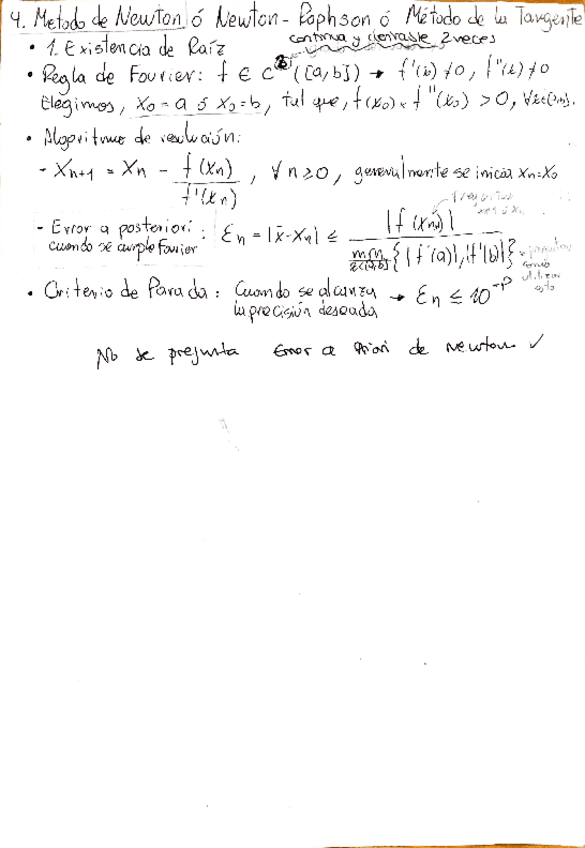 4. Metodo de Newton ó Newton-Raphson ó Método de la Tangente
• 1. Existencia de Raíz
continua y derivable 2 veces
• Regla de Fourier: f ∈ C² ([a,b]) → f'(x) ≠0, f''(x) ≠0
Elegimos, x₀ = a ó x₀ = b, tal que, f(x₀) × f''(x₀) > 0, ∀x∈[a,b].
• Algoritmo de resolución:
- Xn+1 = Xn - f(Xn) / f'(Xn) , ∀ n ≥ 0, generalmente se inicia Xn = X₀
- Error a posteriori: cuando se cumple Fourier
εn = |x̄ - Xn| ≤ |f(Xn)| / min x∈[a,b] {|f'(a)|, |f'(b)|}
utilizar esto
• Criterio de Parada: Cuando se alcanza la precisión deseada → εn ≤ 10^-p
No se pregunta Error a Priori de Newton ✓